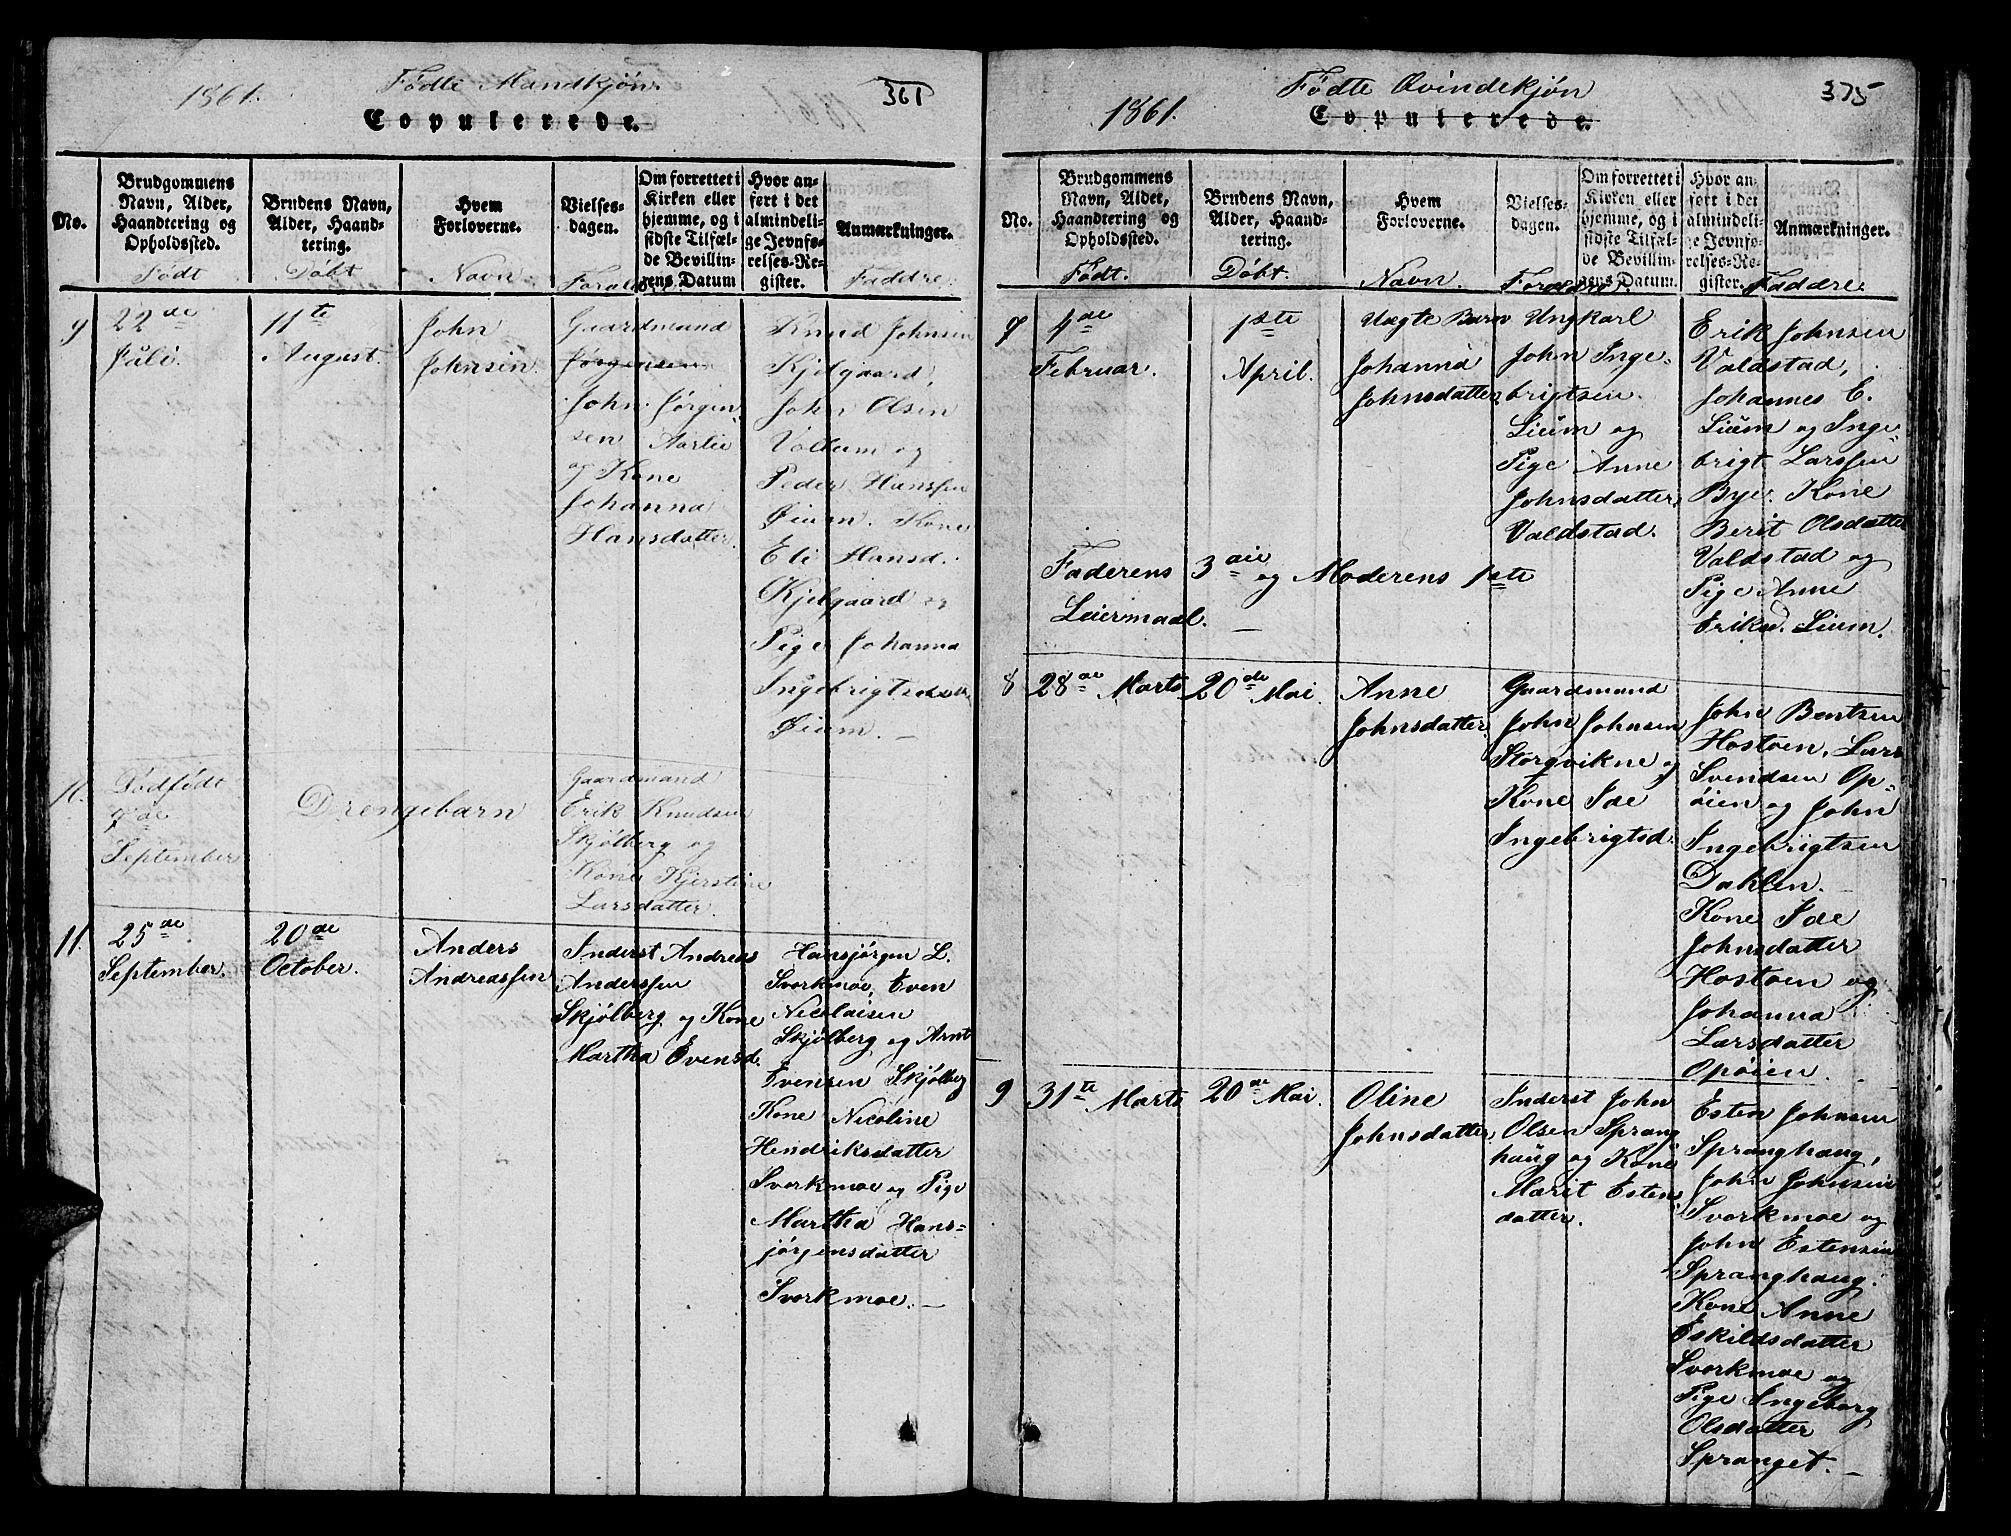 1861.
Fødte Mandkjøn.
361
Copulerede.
No.
Brudgommens
Navn, Alder,
Haandtering og
Opholdssted.
Født
Brudens Navn,
Alder, Haand-
tering.
Døbt
Hvem
Forloverne.
Navn
Vielses-
dagen.
Om forrettet i
Kirken eller
hjemme, og i
sidste Tilfæl-
de Bevillin-
gens Datum
Hvor an-
ført i det
almindeli-
ge Jevnfø-
relses-Re-
gister.
Anmærkninger.
Faddre.
9
22de
Juli.
11te
August.
John
Johnsen.
Gaardmand
Jørgensen
John Jørgen-
sen Aarlie
og Kone
Johanna
Hansdatter.
Knud Johnsen
Kjelgaard,
John Olsen
Vollum og
Peder Hanssen
Øium. Kone
Eli Hansd.
Kjelgaard og
Pige Johanna
Ingebrigtsdatter
Øium. —
10.
Dødfødt
9de
September
Drengebarn
Gaardmand
Erik Knudsen
Skjølberg og
Kone Kjerstine
Larsdatter.
11.
25de
September.
20de
October.
Anders
Andreassen
Inderst Andreas
Anderssen
Skjølberg og Kone
Martha Evensd.
Hansjørgen L.
Svorkmoe, Even
Nicolaisen
Skjølberg og Arnt
Evensen Skjølberg
Kone Nicoline
Hendriksdatter
Svorkmoe og Pige
Martha Hans-
jørgensdatter
Svorkmoe. —
1861.
Fødte Qvindekjøn
375
Copulerede.
No.
Brudgommens
Navn, Alder,
Haandtering og
Opholdssted.
Født.
Brudens Navn,
Alder, Haand-
tering.
Døbt.
Hvem
Forloverne.
Navn.
Vielses-
dagen.
Om forrettet i
Kirken eller
hjemme, og i
sidste Tilfæl-
de Bevillin-
gens Datum.
Hvor an-
ført i det
almindeli-
ge Jevnfø-
relses-Re-
gister.
Anmærkninger.
Faddre.
7
4de
Februar.
1ste
April.
Uægte Barn
Johanna
Johnsdatter.
Ungkarl
John Inge-
brigtsen
Lium og
Pige Anne
Johnsdatter
Valdstad.
Erik Johnsen
Valdstad,
Johannes E.
Lium og Inge-
brigt Larssen
Bye. Kone
Berit Olsdatter
Valdstad og
Pige Anne
Eriksd. Lium.
Faderens 3die og Moderens 1ste
Leiermaal. —
8
28de Marts
20de Mai.
Anne
Johnsdatter
Gaardmand
John Johnsen
Storgvikne og
Kone Ide
Ingebrigtsd.
John Bentsen
Hostoen, Lars
Svendsen Op-
øien og John
Ingebrigtsen
Dahlen. —
Kone Ide
Johnsdatter
Hostoen og
Johanna
Larsdatter
Opøien.
9
31te Marts
20de Mai.
Oline
Johnsdatter
Inderst John
Olsen Sprang
haug og Kone
Marit Estens
datter.
Esten Johnsen
Spranghaug,
John Johnsen
Svorkmoe og
John Estensen
Spranghaug.
Kone Anne
Eskildsdatter
Svorkmoe og
Pige Ingeborg
Olsdatter
Spranget. —